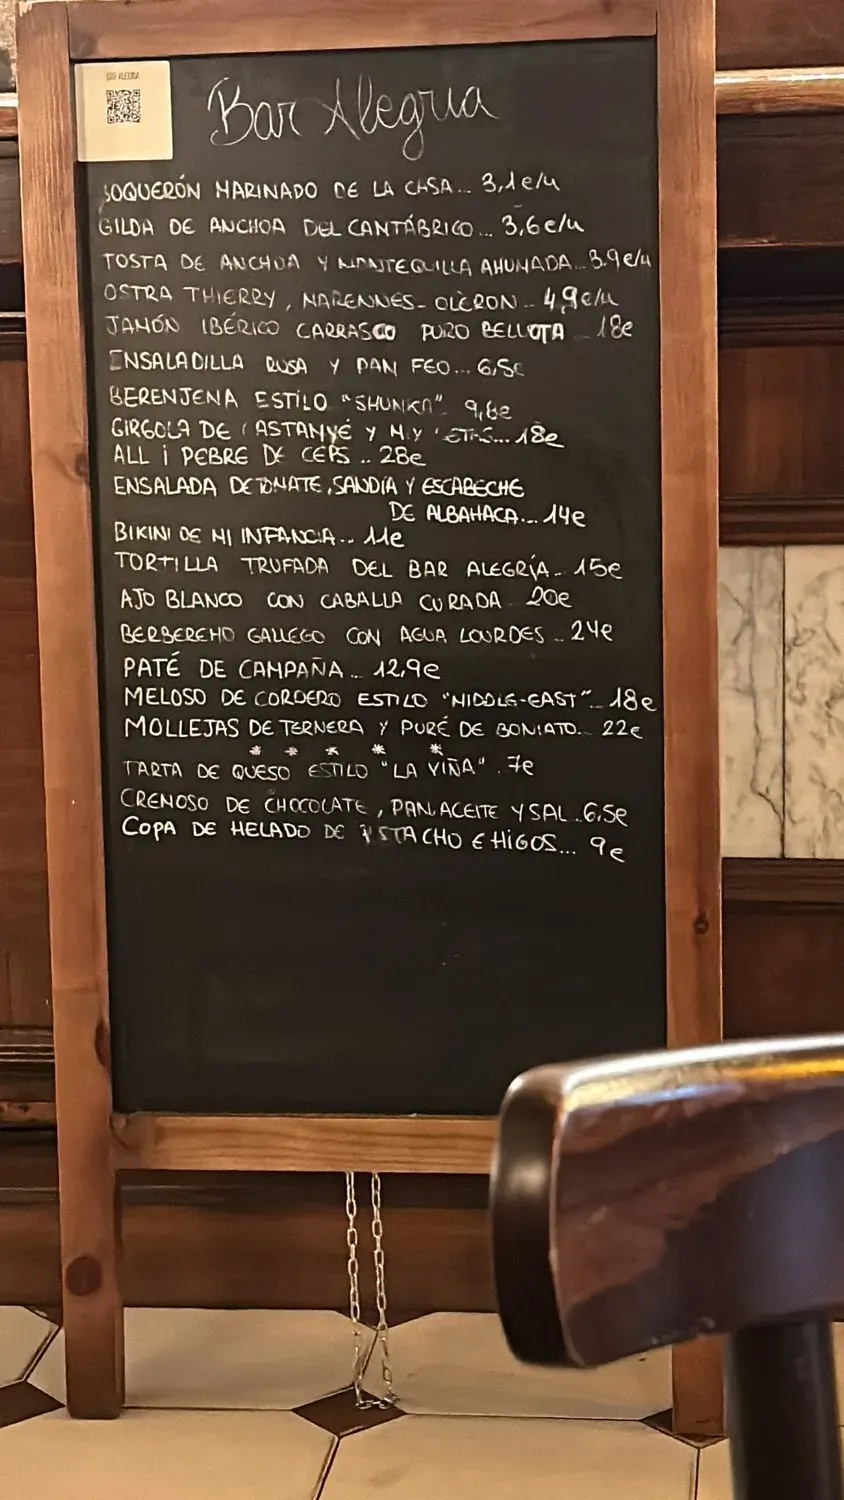 BAR ALEGRIA
Bar Alegria
BOQUERÓN MARINADO DE LA CASA... 3,1e/u
GILDA DE ANCHOA DEL CANTÁBRICO... 3,6e/u
TOSTA DE ANCHOA Y MANTEQUILLA AHUMADA... 3.9e/u
OSTRA THIERRY, MARENNES-OLÈRON... 4,9e/u
JAMÓN IBÉRICO CARRASCO PURO BELLOTA 18e
ENSALADILLA RUSA Y PAN FEO... 6,5e
BERENJENA ESTILO "SHUNKA" 9,8e
GIRGOLA DE CASTANYÉ Y ... 18e
ALL i PEBRE DE CEPS .. 28e
ENSALADA DE TOMATE, SANDÍA Y ESCABECHE
DE ALBAHACA... 14e
BIKINI DE MI INFANCIA... 11e
TORTILLA TRUFADA DEL BAR ALEGRÍA.. 15e
AJO BLANCO CON CABALLA CURADA 20e
BERBERECHO GALLEGO CON AGUA LOURDES .. 24e
PATÉ DE CAMPAÑA... 12,9e
MELOSO DE CORDERO ESTILO "MIDDLE-EAST"... 18e
MOLLEJAS DE TERNERA Y PURÉ DE BONIATO.. 22e
* * * * *
TARTA DE QUESO ESTILO "LA VIÑA" . 7e
CREMOSO DE CHOCOLATE, PAN, ACEITE Y SAL ..6,5e
COPA DE HELADO DE PISTACHO E HIGOS... 9e